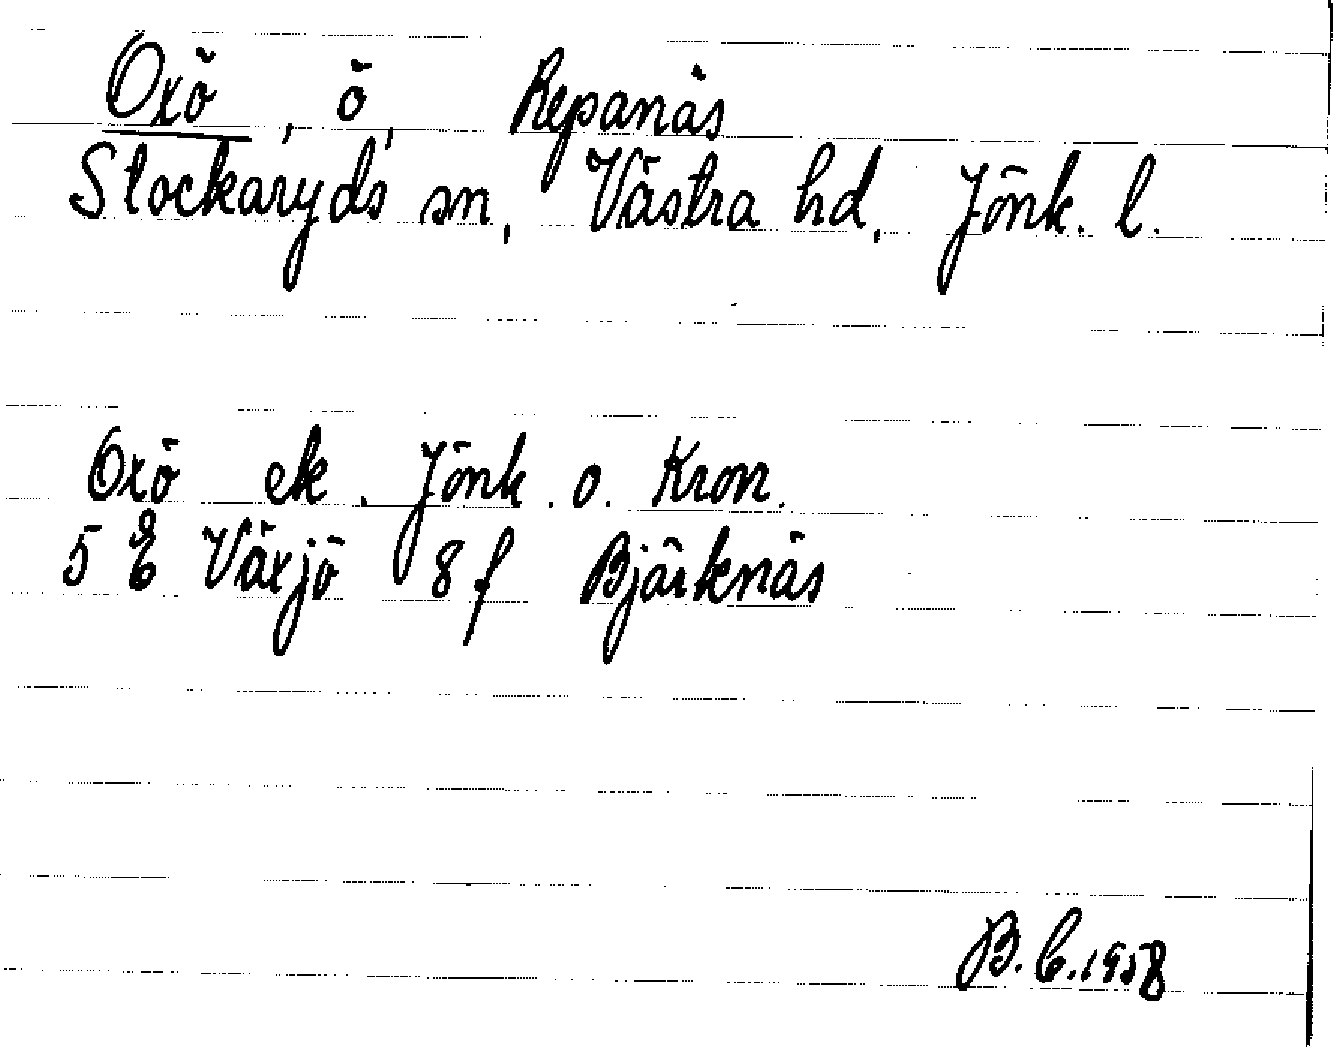 Oxö, ö, Repanäs
Stockaryds sn, Västra hd, Jönk. l.
Oxö ek. Jönk. o. Kron.
5 E Växjö 8 f Björknäs
B. C. 1958